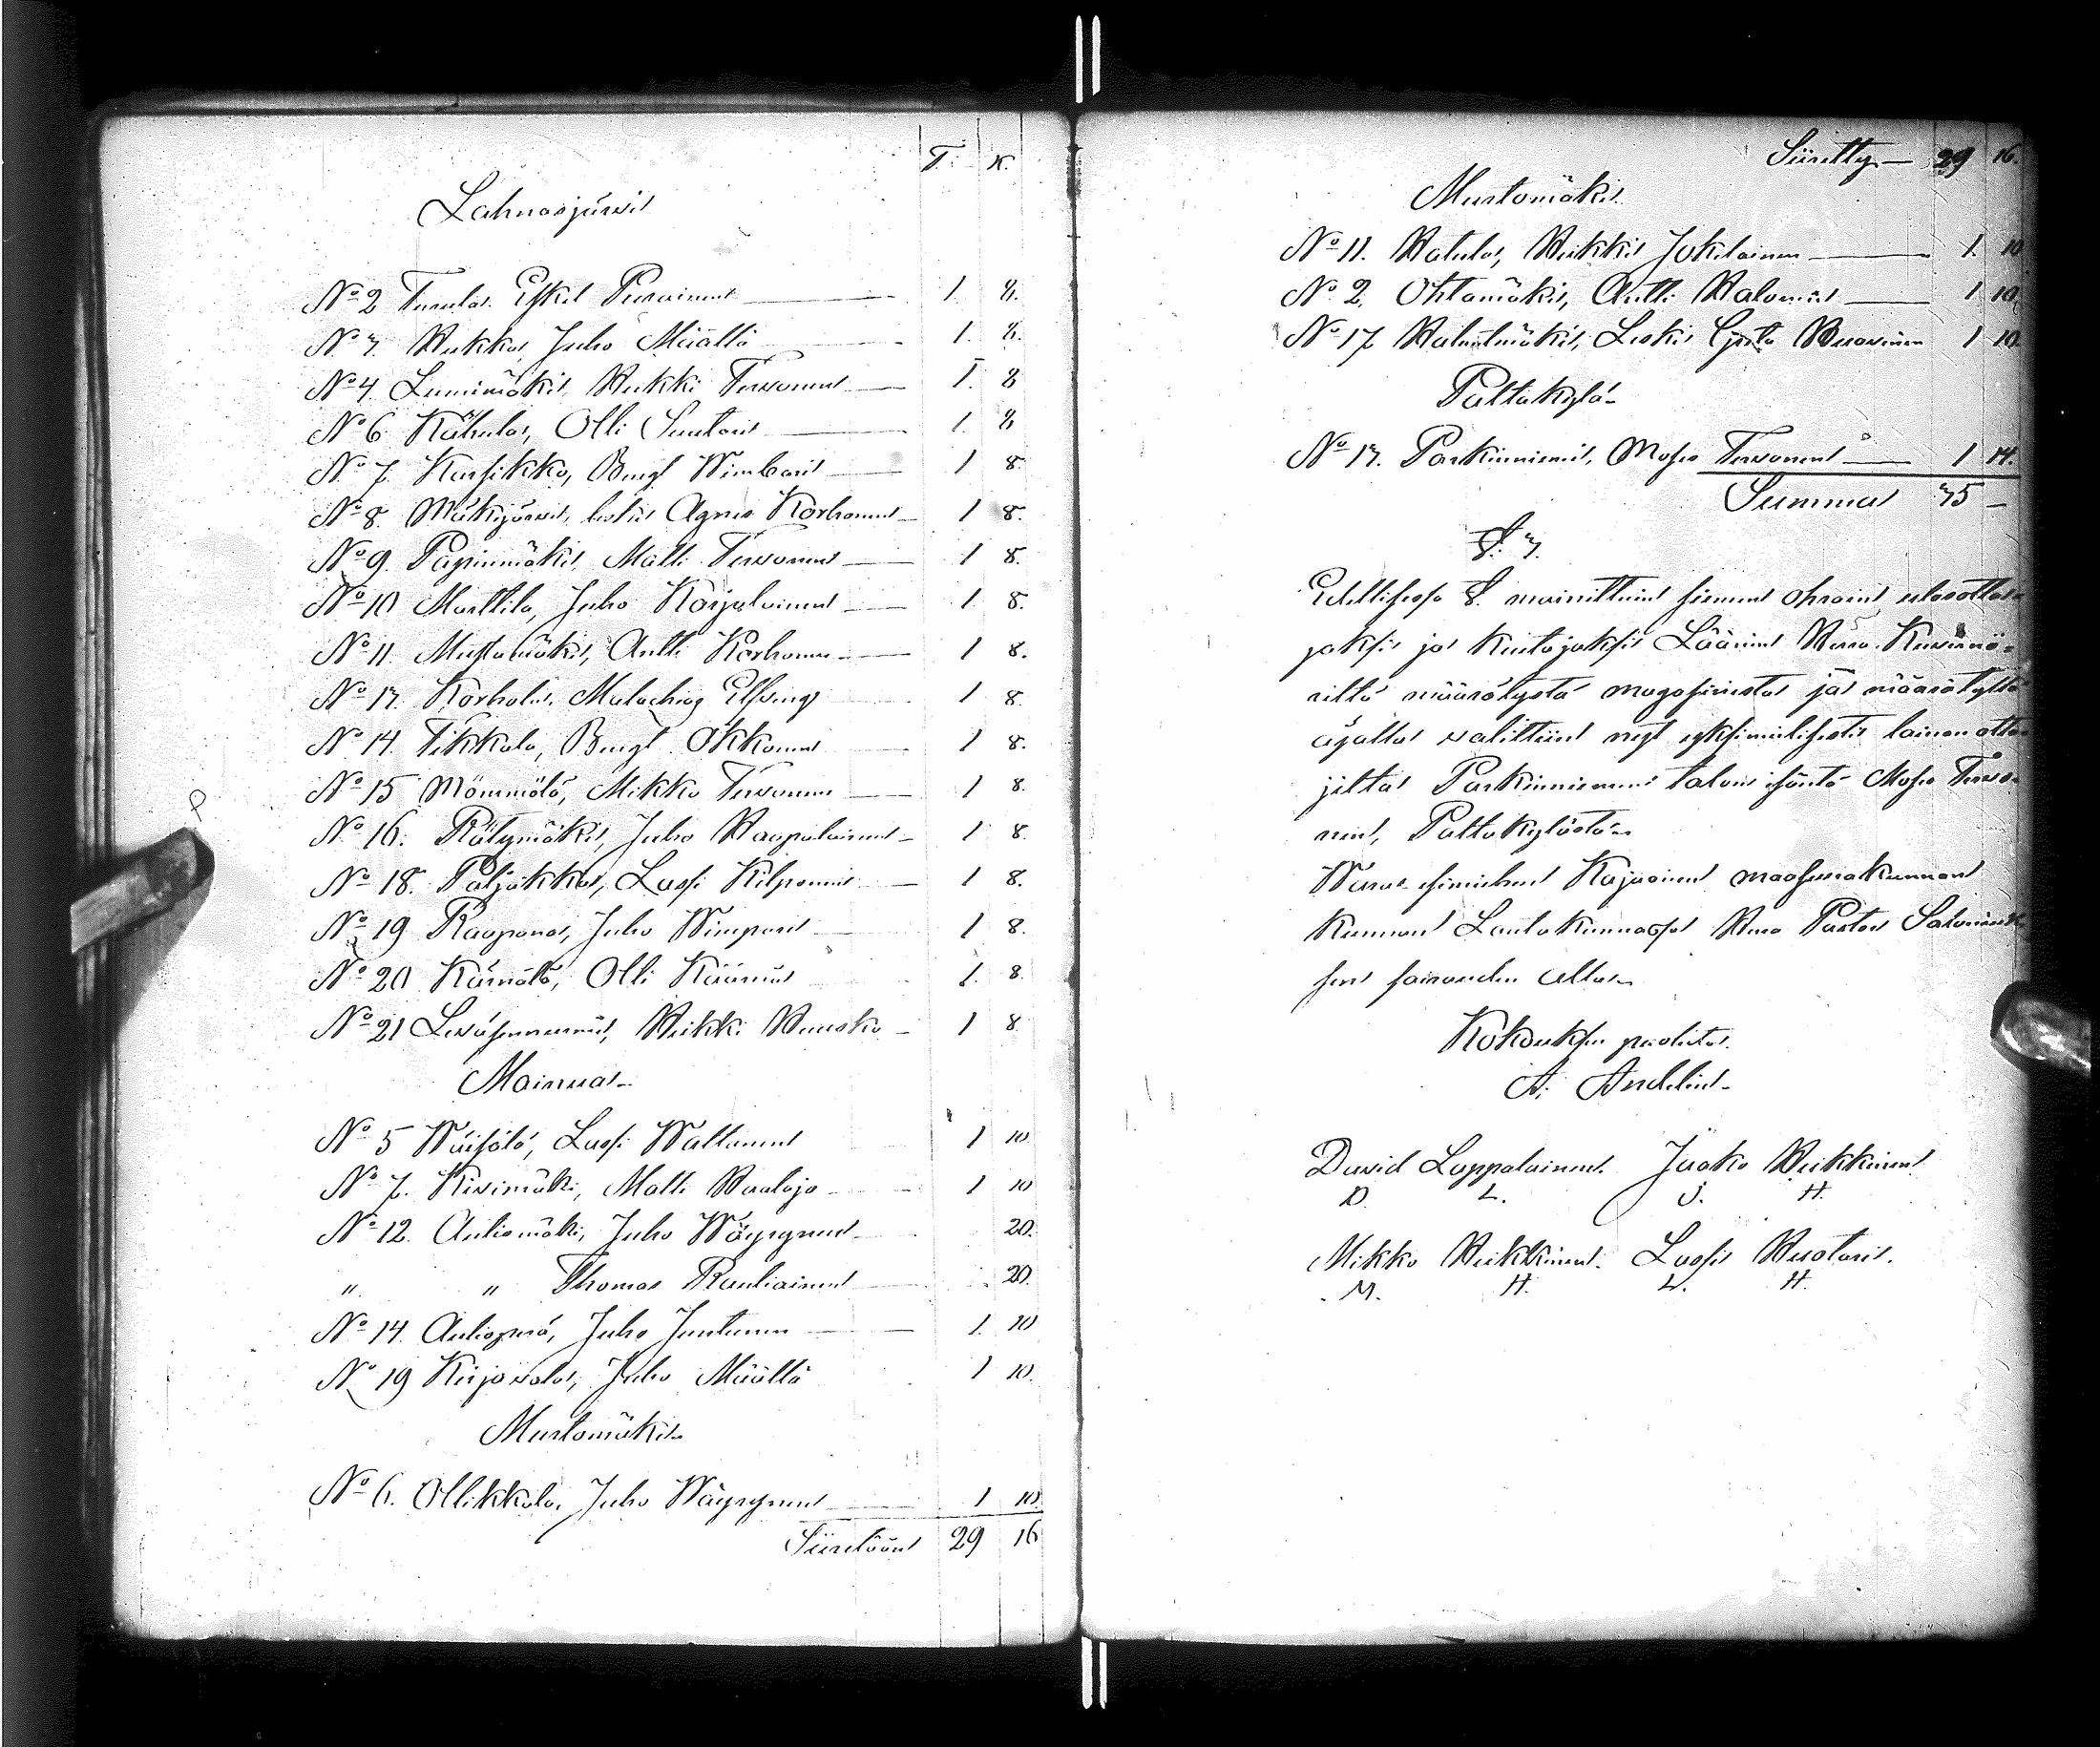 T. K.
Lahnasjärvi
No 2 Turula. Eskel Purainen 1. 8.
No 3. Heikka, Juho Määttä 1. 8.
No 4 Lumimäki, Heikki Tervonen 1. 8
No 6 Kähula, Olli Suutari 1. 8
No 7. Kursikko, Bengt Wimbari 1 8.
No 8. Mätäjärvi, leski Agnes Korhonen 1 8.
No 9. Papinmäki, Matti Tervonen 1 8.
No 10 Marttila, Juho Karjalainen 1 8.
No 11. Mustamäki, Antti Korhonen 1 8.
No 13. Korhola, Malachias Elfving 1 8.
No 14. Tikkala, Bengt Okkonen 1 8.
No 15 Mömmölä, Mikko Tervonen 1 8.
No 16. Rätymäki, Juho Haapalainen 1 8.
No 18. Paljakka, Lassi Kilponen 1 8.
No 19 Raapana, Juho Wimpari 1 8.
No 20 Kärnälä, Olli Kääriä 1. 8
No 21 Leväsenniemi, Heikki Huusko 1 8
Mainua
No 5 Wäisälä, Lassi Waltanen 1 10
No 7. Kivimäki, Matti Haataja 1 10
No 12. Autiomäki, Juho Wäyrynen 20.
" " Thomas Rautiainen 20.
No 14. Autiopurä, Juho Juntunen 1. 10
No 19 Kirjavala, Juho Määttä 1 10.
Mustamäki
No 6. Ollikkala, Juho Wäyrynen 1 10.
Siirtään 29 16
Siiretty 29 16.
Mustamäki
No 11. Hatula, Heikki Jokelainen 1. 10
No 2. Ohtamäki, Antti Halonen 1 10.
No 17 Leski 1 10.
Paltakylä
No 13. Parkinniemi, Moses Tervonen 1 14.
Summa 35 –
§. 3.
Edellisessä §. mainittuin siemen ohrain ulosotta-
jaksi ja kuitajaksi Läänin Herra Kuvernö-
riltä määrätystä magasinista ja määrätyllä
ajalla valittiin nyt yksimielisesti lainan otta-
jilta Parkinniemen talon isäntä Moses Tervo-
nen, Paltakylästä
Wara esimiehen Kajaanin maaseurakunnan
Kunnan Lautakunnassa Herra Pastor
sen sairauden alla
Kokouksen puolesta.
A. Andelin
David Lappalainen. Jaako Heikkinen
D. L. J. H.
Mikko Heikkinen. Lassi Huotari.
M. H. L. H.